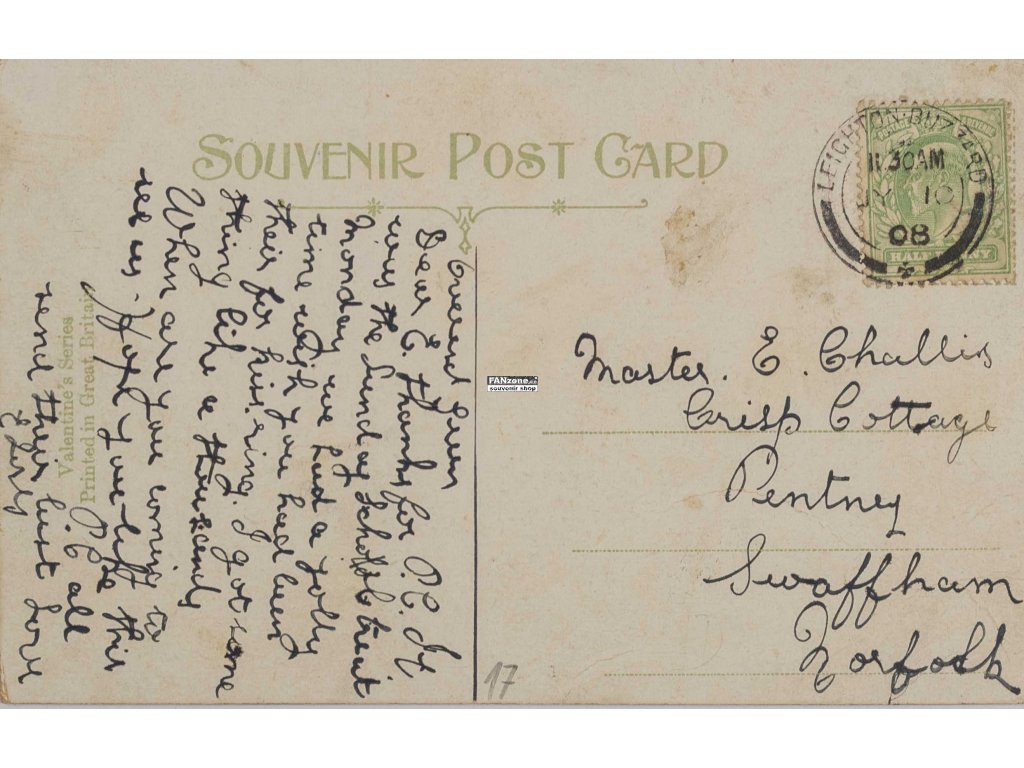 SOUVENIR POST CARD
LEIGHTON BUZZARD
11.30AM
JY 10
08
HALFPENNY
Master. E. Challis
Crisp Cottage
Pentney
Swaffham
Norfolk
17
Green
Dear E. thanks for P.C. It
was the Sunday School treat
Monday we had a jolly
time wish you had been
their for his ring. I got some
thing like a thousand
When are you coming to
see us. Hope you like this
P.C. all
send their best love
Valentine's Series
Printed in Great Britain
FANzone.cz
souvenir shop